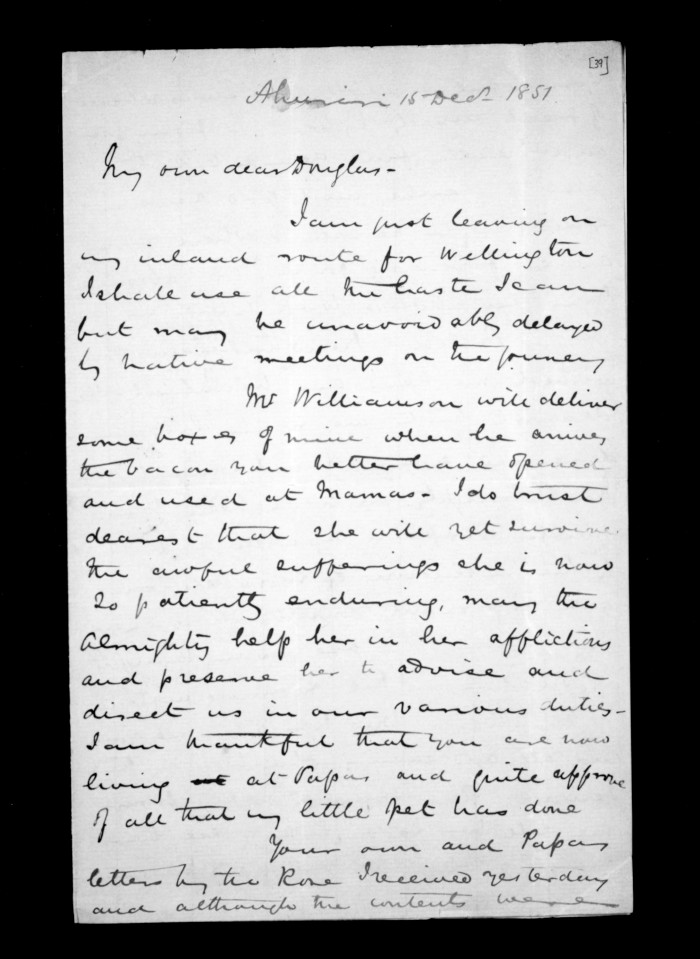 [39]
Ahuriri 15 Decr 1851
My own dear Douglas-
I am just leaving on
my inland route for Wellington
I shall use all the haste I can
but may be unavoidably delayed
by native meetings on the journey
Mr Williamson will deliver
some boxes of mine when he arrives
the bacon you better have opened
and used at Mamas- I do trust
dearest that she will yet survive
the awful sufferings she is now
so patiently enduring, may the
Almighty help her in her afflictions
and preserve her to advise and
direct us in our various duties-
I am thankful that you are now
living at Papas and quite approve
of all that my little pet has done
Your own and Papas
letters by the Rose I received yesterday
and although the contents were